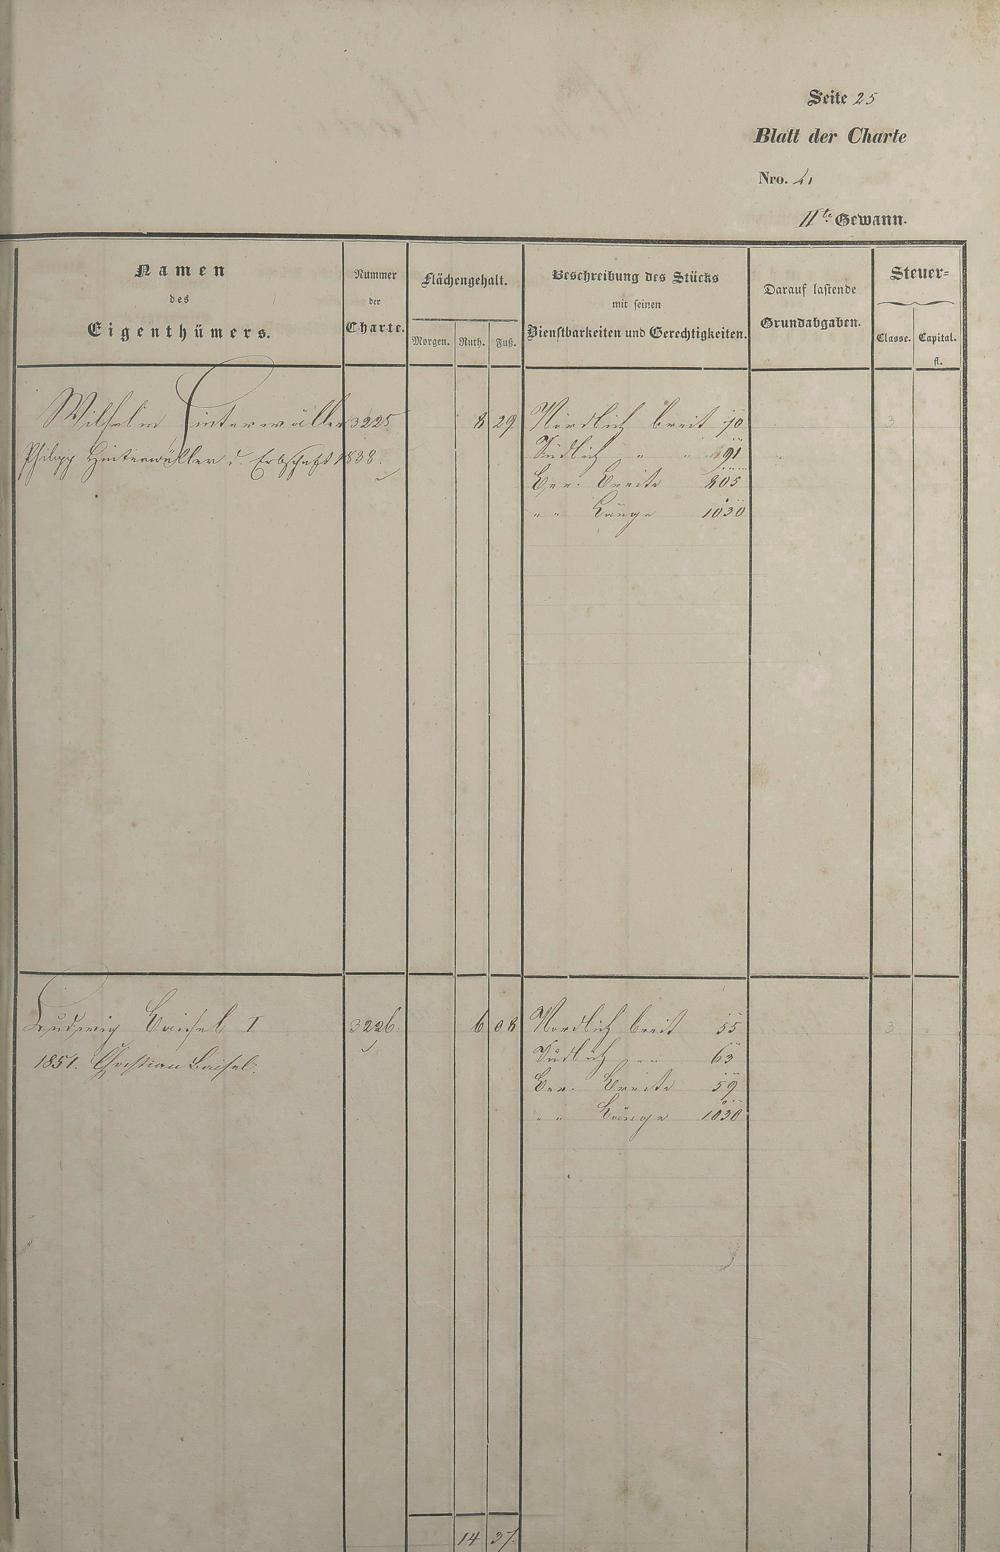 Seite 25
Blatt der Charte
Nro. 21
IIte Gewann.
Namen
des
Eigenthümers.
Nummer
der
Charte.
Flächengehalt.
Morgen. Ruth. Fuß.
Beschreibung des Stücks
mit seinen
Dienstbarkeiten und Gerechtigkeiten.
Darauf lastende
Grundabgaben.
Steuer=
Classe. Capital.
fl.
Wilhelm Hinterwäller 3225 8 29 Nördlich breit 70 3
Philipp Hinterwäller d. Erbschaft 1838. Südlich " " 91
Ber. Breite 805
" " Länge 1030
Ludwig Baisel I 3226. 6 08 Nördlich breit 55 3
1851. Christian Baisel. Südlich " " 63
Ber. Breite 59
" " Länge 1030
14 37